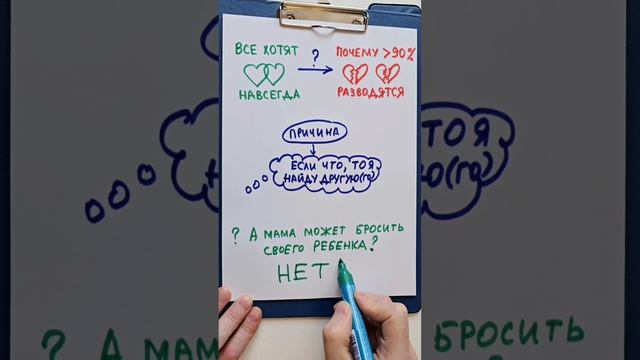 ?
ВСЕ ХОТЯТ
ПОЧЕМУ >90%
НАВСЕГДА
РАЗВОДЯТСЯ
ПРИЧИНА
ЕСЛИ ЧТО, ТО Я
НАЙДУ ДРУГУЮ(ГО)
? А МАМА МОЖЕТ БРОСИТЬ
СВОЕГО РЕБЕНКА?
НЕТ